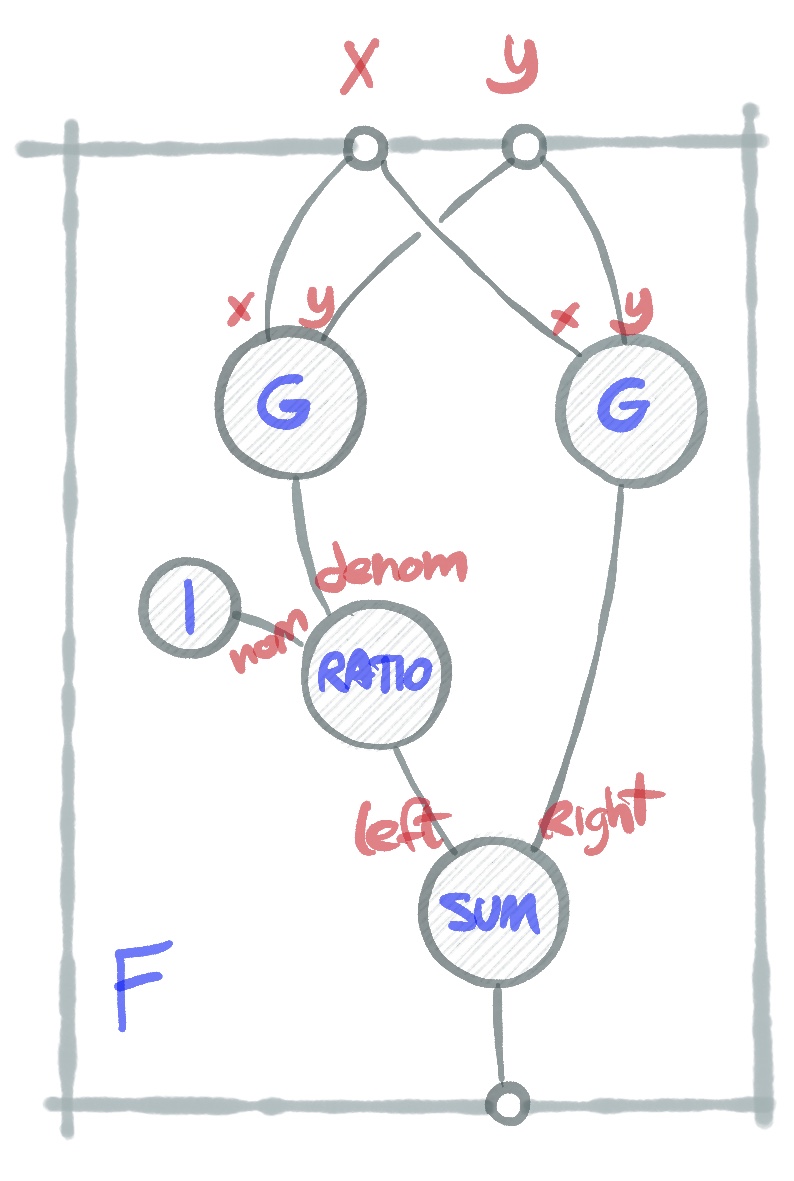 x y
x y
x y
G
G
denom
1
nom
RATIO
left
Right
SUM
F